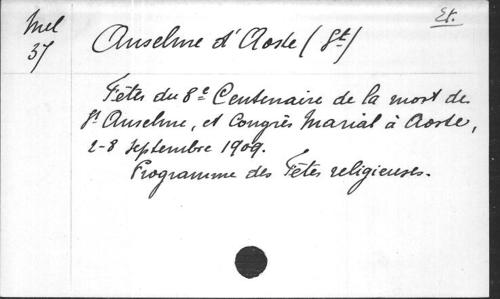 Mel
37
Et.
Anselme d'Aoste (St)
Fêtes du 8e Centenaire de la mort de
St Anselme, et Congrès Marial à Aoste,
2-8 Septembre 1909.
Programme des Fêtes religieuses.